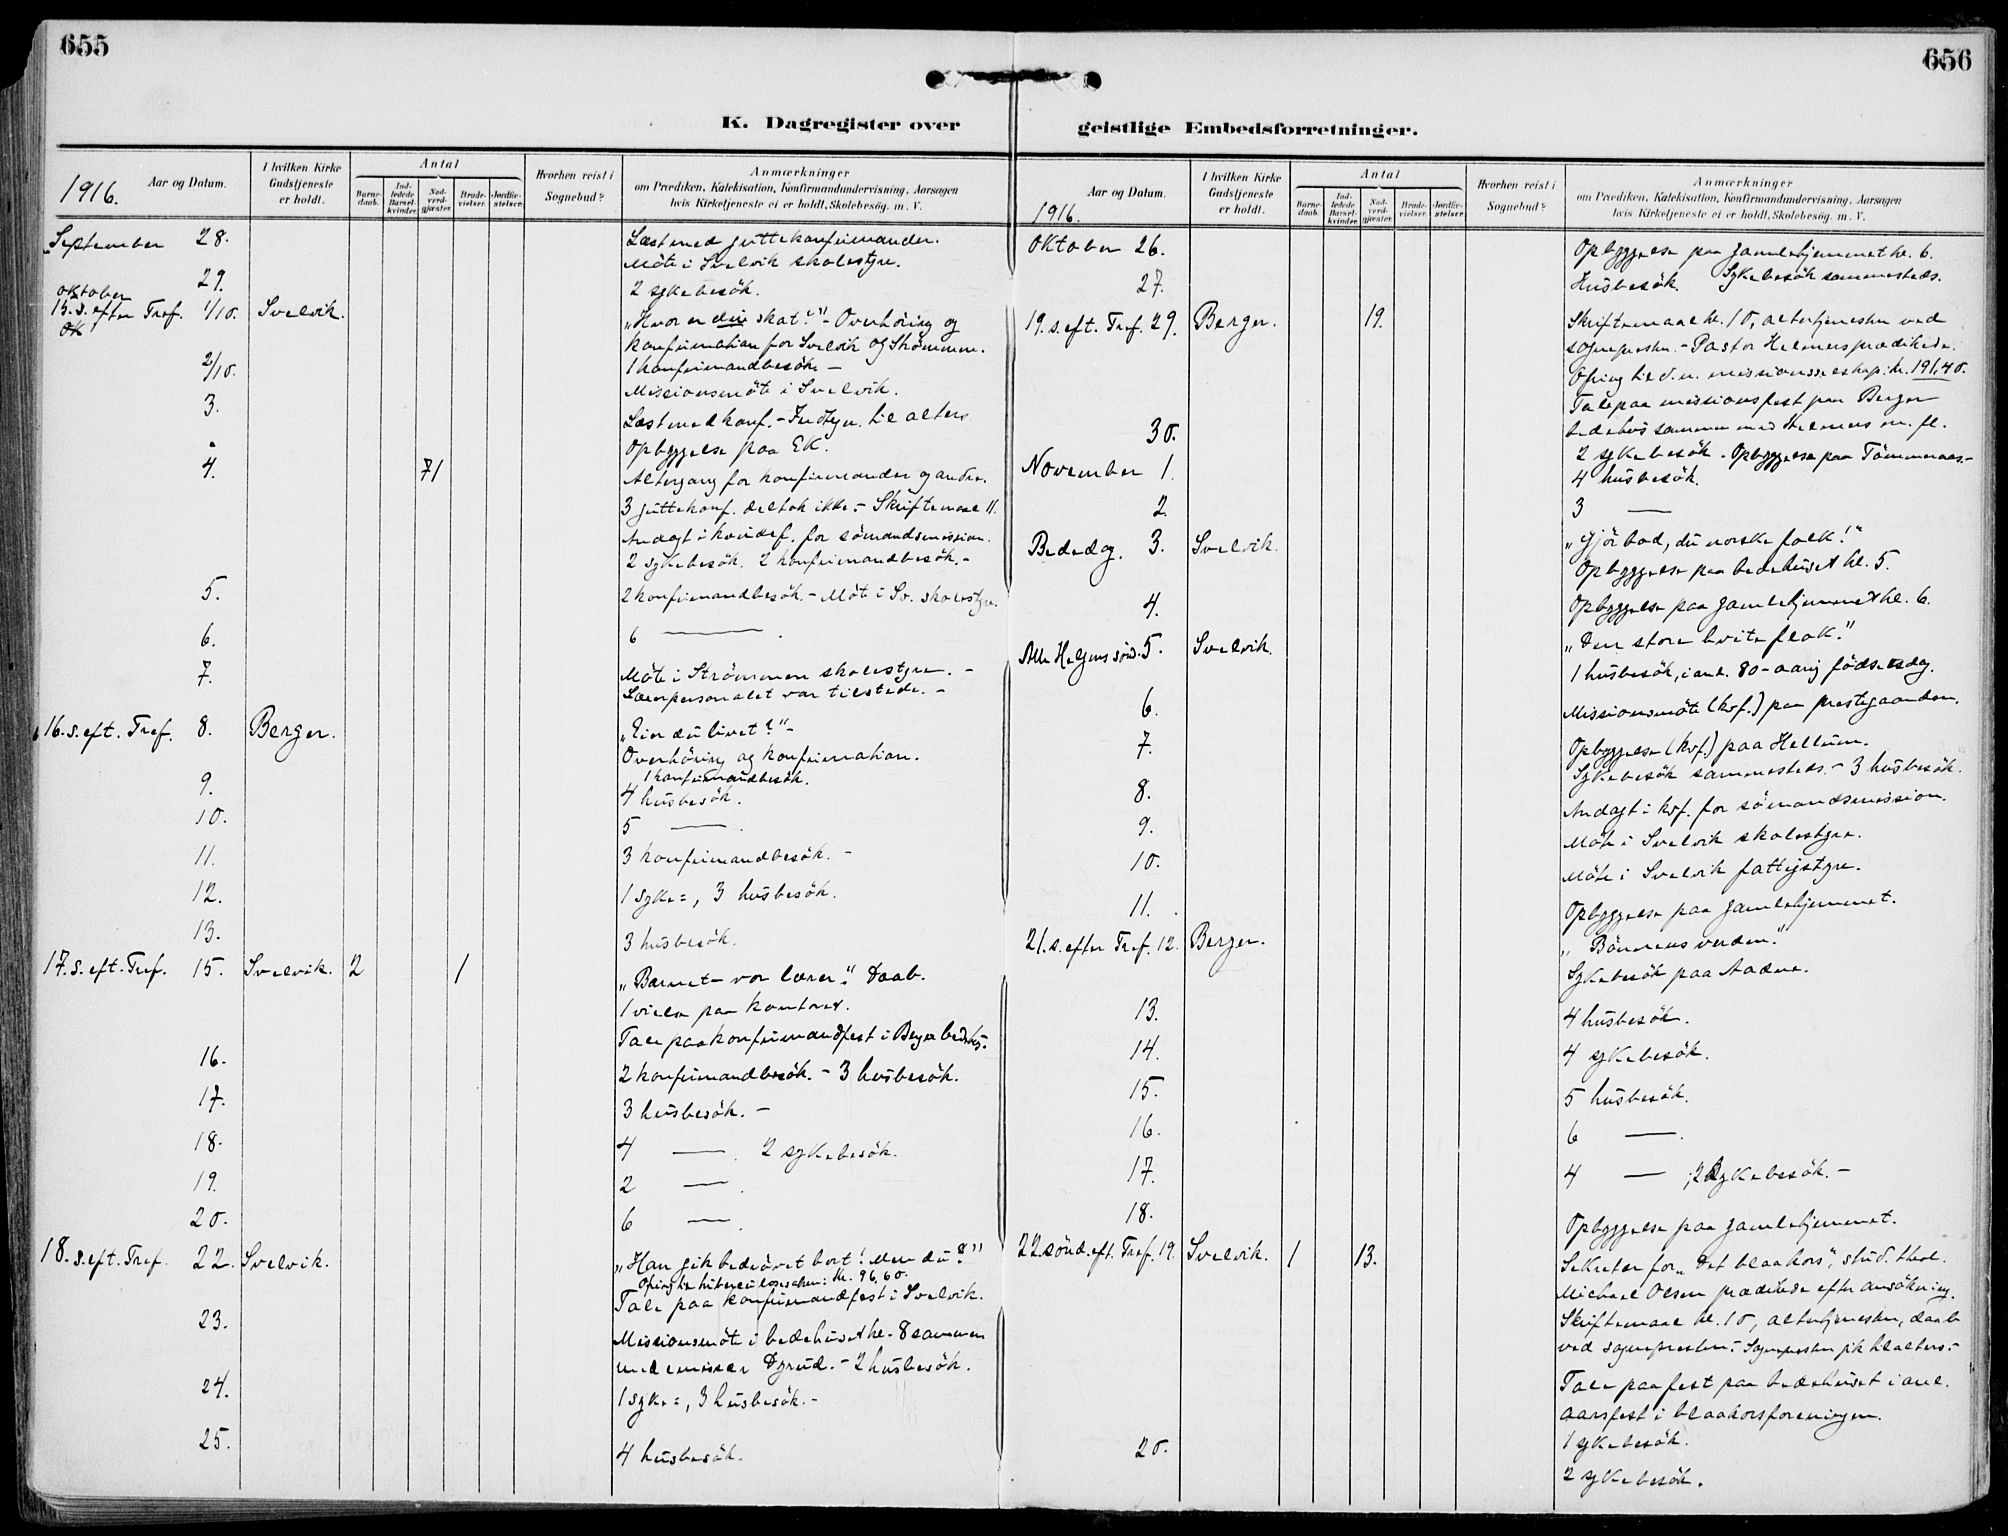 655
K. Dagregister over
1916.
Aar og Datum.
I hvilken Kirke Gudstjeneste er holdt.
Antal
Barne-daab.
Ind-ledede Barsel-kvinder.
Nad-verd-gjæster.
Brude-vielser.
Jordfæ-stelser.
Hvorhen reist i Sognebud?
Anmærkninger
om Prædiken, Katekisation, Konfirmandundervisning, Aarsagen
hvis Kirketjeneste ei er holdt, Skolebesøg. m. V.
September 28. Læst med guttekonfirmander.
Möte i Svelvik skolestyre.
29. 2 sykebesök.
oktober
15. s. efter Tref. 1/10. Svelvik. „Hvor er din skat?" - Overhöring og
konfirmation for Svelvik og Strömmen.
2/10. 1 konfirmandbesök. -
Missionsmöte i Svelvik.
3. Læst med konf. - Indtegn. til alters
Opbyggelse paa EK.
4. 71 Altergang for konfirmander og andre.
3 guttekonf. deltok ikke. - Skriftemaal 11.
Andagt i kvindef. for sömandsmission.
2 sykebesök. 2 konfirmandbesök. -
5. 2 konfirmandbesök. - Möte i Sv. skolestyre.
6. 6 —— .
7. Möte i Strömmen skolestyre. -
Lærerpersonalet var tilstede. -
16. s. eft. Tref. 8. Berger. „Eier du livet?" -
Overhöring og konfirmation.
1 konfirmandbesök.
9. 4 husbesök.
10. 5 —— .
11. 3 konfirmandbesök. -
12. 1 syke=, 3 husbesök.
13. 3 husbesök.
17. s. eft. Tref. 15. Svelvik. 2 1 „Barnet - vor lærer." Daab.
1 vielse paa kontoret.
Tale paa konfirmandfest i Berger bedehus.
16. 2 konfirmandbesök. - 3 husbesök.
17. 3 husbesök. -
18. 4 —— . 2 sykebesök.
19. 2 —— .
20. 6 —— .
18. s. eft. Tref. 22. Svelvik. „Han gik bedrövet bort! Men du?"
Ofring til tuberculosesaken: kr. 96,60.
Tale paa konfirmandfest i Svelvik.
23. Missionsmöte i bedehuset kl. 8 sammen
med emissær Dgrud. - 2 husbesök.
24. 1 syke=, 3 husbesök. -
25. 4 husbesök.
656
geistlige Embedsforretninger.
Aar og Datum.
1916.
I hvilken Kirke Gudstjeneste er holdt.
Antal
Barne-daab.
Ind-ledede Barsel-kvinder.
Nad-verd-gjæster.
Brude-vielser.
Jordfæ-stelser.
Hvorhen reist i Sognebud?
Anmærkninger
om Prædiken, Katekisation, Konfirmandundervisning, Aarsagen
hvis Kirketjeneste ei er holdt, Skolebesög. m. V.
Oktober 26. Opbyggelse paa gamlehjemmet kl. 6.
27. Husbesök. Sykebesök sammesteds.
19. s. eft. Tref. 29. Berger. 19. Skriftemaal kl. 10, altertjenesten ved
sognepresten. - Pastor Helmers prædikede.
Ofring til d. n. missionsselskap: kr. 191,40.
Tale paa missionsfest paa Berger
bedehus sammen med Helmers m. fl.
30. 2 sykebesök. Opbyggelse paa Tömmeraas. -
November 1. 4 husbesök.
2. 3 ——
Bededag. 3. Svelvik. „Gjör bod, du norske folk!"
Opbyggelse paa bedehuset kl. 5.
4. Opbyggelse paa gamlehjemmet kl. 6.
Alle Helgens sönd. 5. Svelvik. „Den store hvite flok."
1 husbesök, i anl. 80-aarig födselsdag.
6. Missionsmöte (kvf.) paa prestegaarden.
7. Opbyggelse (kvf.) paa Hellum.
Sykebesök sammesteds. - 3 husbesök.
8. Andagt i kvf. for sömandsmission.
9. Möte i Svelvik skolestyre.
10. Möte i Svelvik fattigstyre.
11. Opbyggelse paa gamlehjemmet.
21. s. efter Tref. 12. Berger. „Bönnens verden."
Sykebesök paa Aadne.
13. 4 husbesök.
14. 4 sykebesök.
15. 5 husbesök.
16. 6 —— .
17. 4 —— ; 2 sykebesök. -
18. Opbyggelse paa gamlehjemmet.
22. sönd. eft. Tref. 19. Svelvik. 1 13. Sekretær for „Det blaa kors", stud. theol.
Michael Olsen prædikede efter ansökning.
Skriftemaal kl. 10, altertjenesten, daab
ved sognepresten. - Sognepresten gik til alters. -
Tale paa fest paa bedehuset i anl.
aarsfest i blaakorsforeningen.
1 sykebesök.
20. 2 sykebesök.